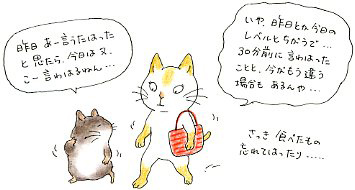 昨日 あー言うたはった
と思たら、今日は又、
こー言わはるねん…
いや、昨日とか今日の
レベルとちがうで…
30分前に言わはった
ことと、今がもう違う
場合もあるんや…
さっき 食べたもの
忘れてはったり……